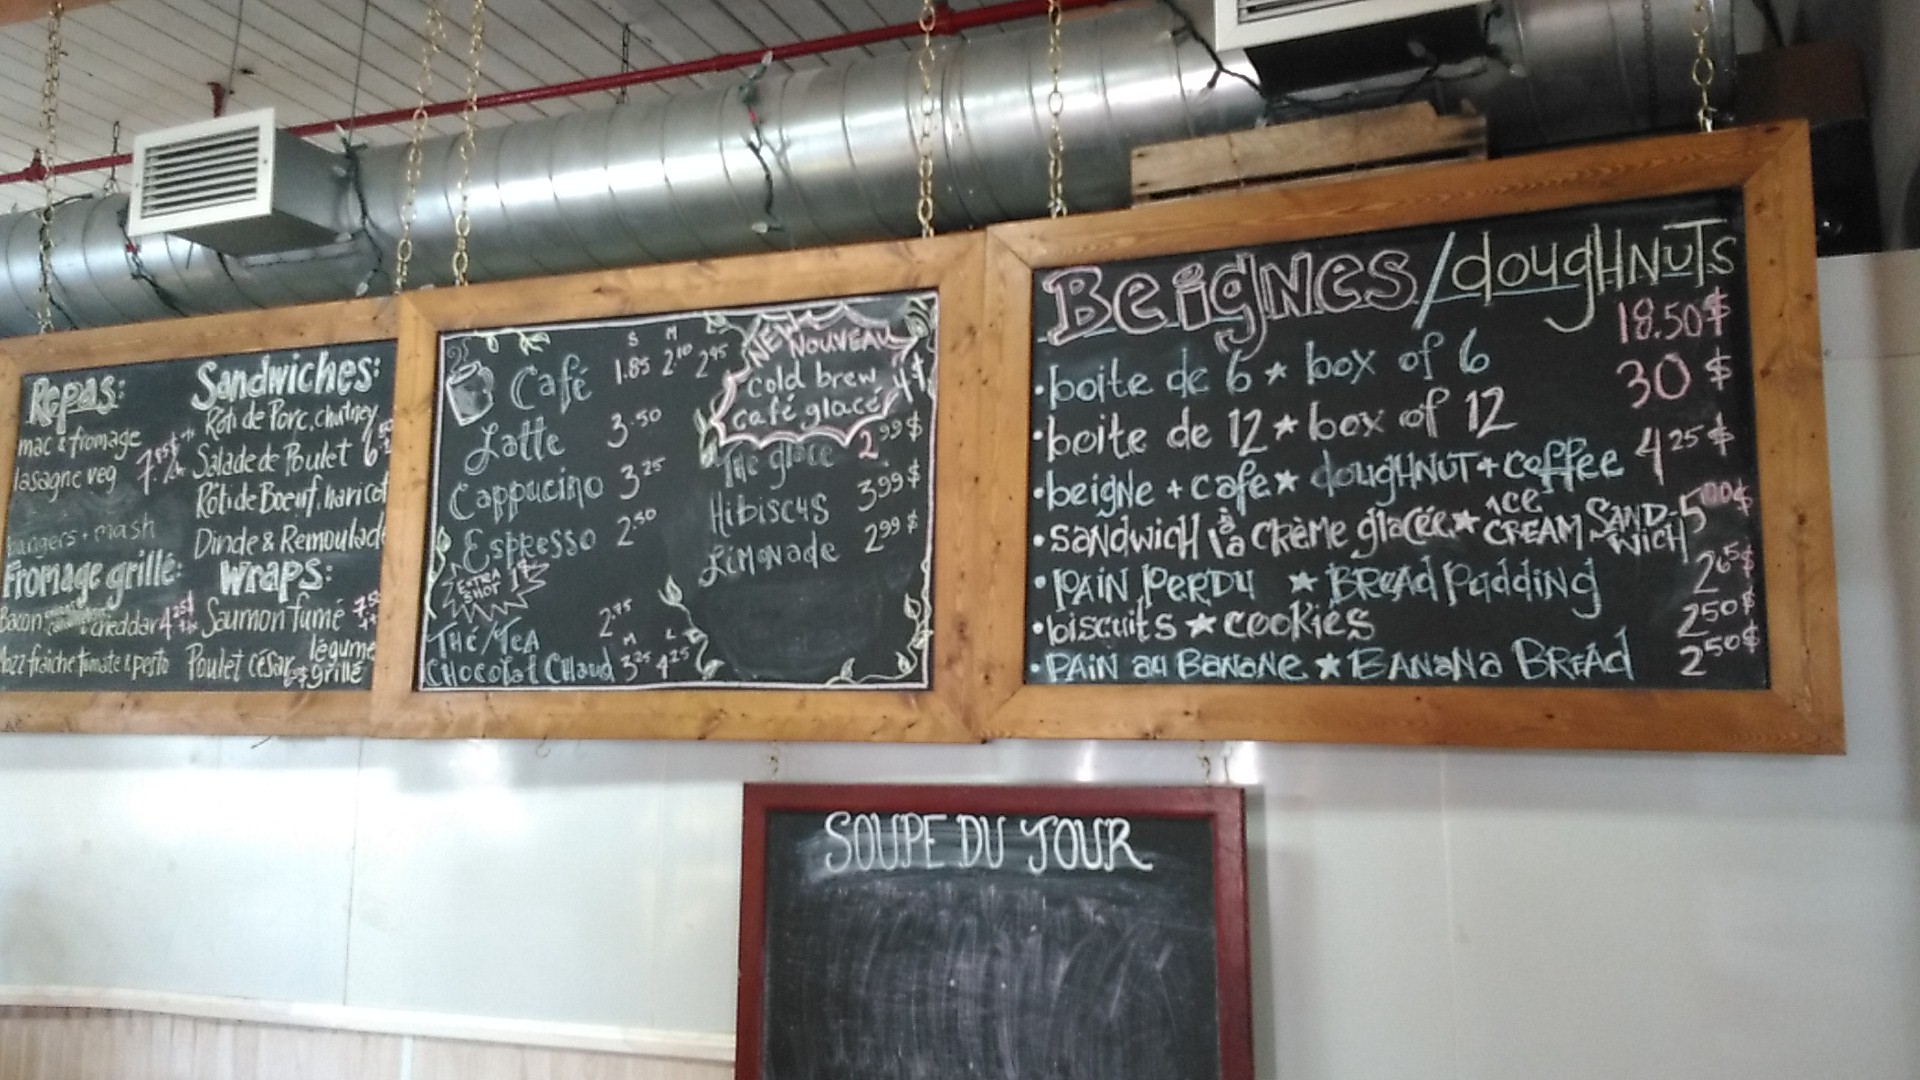 Repas:
mac & fromage
lasagne veg
bangers + mash
Fromage grillé:
Bacon cheddar 4 25$
Mozz fraiche tomate & pesto
Sandwiches:
Rôti de Porc, chutney
Salade de Poulet
Rôti de Boeuf, haricot
Dinde & Remoulade
Wraps:
Saumon fumé
légume
Poulet césar grillé
S M
Café 1.85 2.10 2.45
Latte 3.50
Cappucino 3 25
Espresso 2.50
EXTRA SHOT 1$
Thé/Tea 2.75
M L
Chocolat Chaud 3 25 4 25
NEW NOUVEAU
cold brew 4$
café glacé
Thé glacé 2 99$
Hibiscus 3 99$
Limonade 2 99$
Beignes/doughnuts
18.50$
•boite de 6 ★ box of 6
30$
•boite de 12 ★ box of 12
•beigne + cafe ★ doughnut + coffee 4 25$
•sandwich à la crème glacée ★ ice cream sandwich 5 00$
•pain perdu ★ Bread Pudding 2 65$
•biscuits ★ cookies 2 50$
•pain au Banane ★ Banana Bread 2 50$
SOUPE DU JOUR